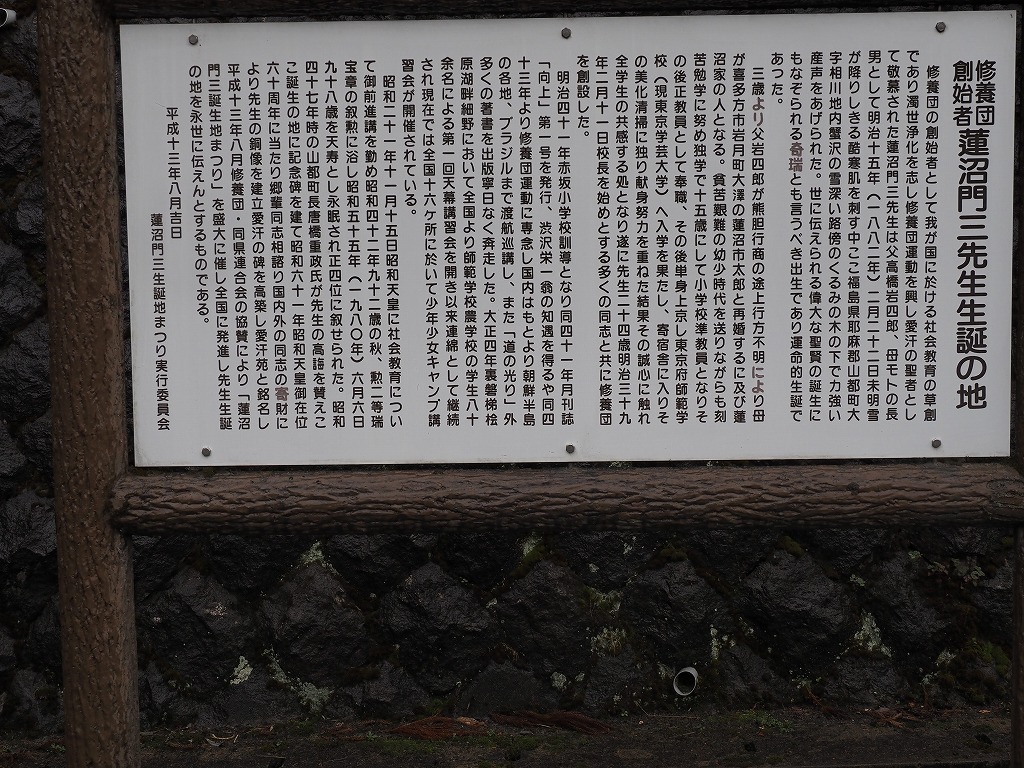 修養団
創始者 蓮沼門三先生生誕の地
修養団の創始者として我が国に於ける社会教育の草創
であり濁世浄化を志し修養団運動を興し愛汗の聖者とし
て敬慕された蓮沼門三先生は父高橋岩四郎、母モトの長
男として明治十五年（一八八二年）二月二十二日未明雪
が降りしきる酷寒肌を刺す中ここ福島県耶麻郡山都町大
字相川地内蟹沢の雪深い路傍のくるみの木の下で力強い
産声をあげられた。世に伝えられる偉大な聖賢の誕生に
もなぞられる奇瑞とも言うべき出生であり運命的生誕で
あった。
三歳より父岩四郎が熊胆行商の途上行方不明により母
が喜多方市岩月町大澤の蓮沼市太郎と再婚するに及び蓮
沼家の人となる。貧苦艱難の幼少時代を送りながらも刻
苦勉学に努め独学で十五歳にして小学校準教員となりそ
の後正教員として奉職、その後単身上京し東京府師範学
校（現東京学芸大学）へ入学を果たし、寄宿舎に入りそ
の美化清掃に独り献身努力を重ねた結果その誠心に触れ
全学生の共感する処となり遂に先生二十四歳明治三十九
年二月十一日校長を始めとする多くの同志と共に修養団
を創設した。
明治四十一年赤坂小学校訓導となり同四十一年月刊誌
「向上」第一号を発行、渋沢栄一翁の知遇を得るや同四
十三年より修養団運動に専念し国内はもとより朝鮮半島
の各地、ブラジルまで渡航巡講し、また「道の光り」外
多くの著書を出版寧日なく奔走した。大正四年裏磐梯桧
原湖畔細野において全国より師範学校農学校の学生八十
余名による第一回天幕講習会を開き以来連綿として継続
され現在では全国十六ケ所に於いて少年少女キャンプ講
習会が開催されている。
昭和二十一年十一月十五日昭和天皇に社会教育につい
て御前進講を勤め昭和四十二年九十二歳の秋、勲二等瑞
宝章の叙勲に浴し昭和五十五年（一九八〇年）六月六日
九十八歳を天寿とし永眠され正四位に叙せられた。昭和
四十七年時の山都町長唐橋重政氏が先生の高誨を賛えこ
こ誕生の地に記念碑を建て昭和六十一年昭和天皇御在位
六十周年に当たり郷輩同志相諮り国内外の同志の寄財に
より先生の銅像を建立愛汗の碑を高築し愛汗苑と銘名し
平成十三年八月修養団・同県連合会の協賛により「蓮沼
門三誕生地まつり」を盛大に催し全国に発進し先生生誕
の地を永世に伝えんとするものである。
平成十三年八月吉日
蓮沼門三生誕地まつり実行委員会